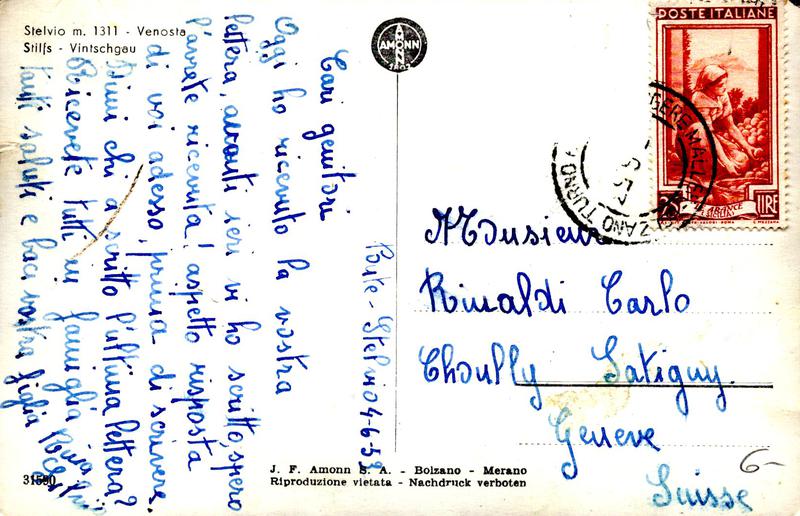 Stelvio m. 1311 - Venosta
Stilfs - Vintschgau
AMONN
AMONN
POSTE ITALIANE
LIRE
Ponte - Stelvio 4-6-52
Cari genitori
Oggi ho ricevuto la vostra
lettera, avanti ieri vi ho scritto, spero
l'avrete ricevuta! aspetto risposta
di voi adesso, prima di scrivere.
Dimi chi a scritto l'ultima lettera?
Ricevete tutti in famiglia
tanti saluti e baci vostra figlia
Monsieur
Rinaldi Carlo
Choully Satigny.
Geneve
Suisse
6-
J. F. Amonn S. A. - Bolzano - Merano
Riproduzione vietata - Nachdruck verboten
31590